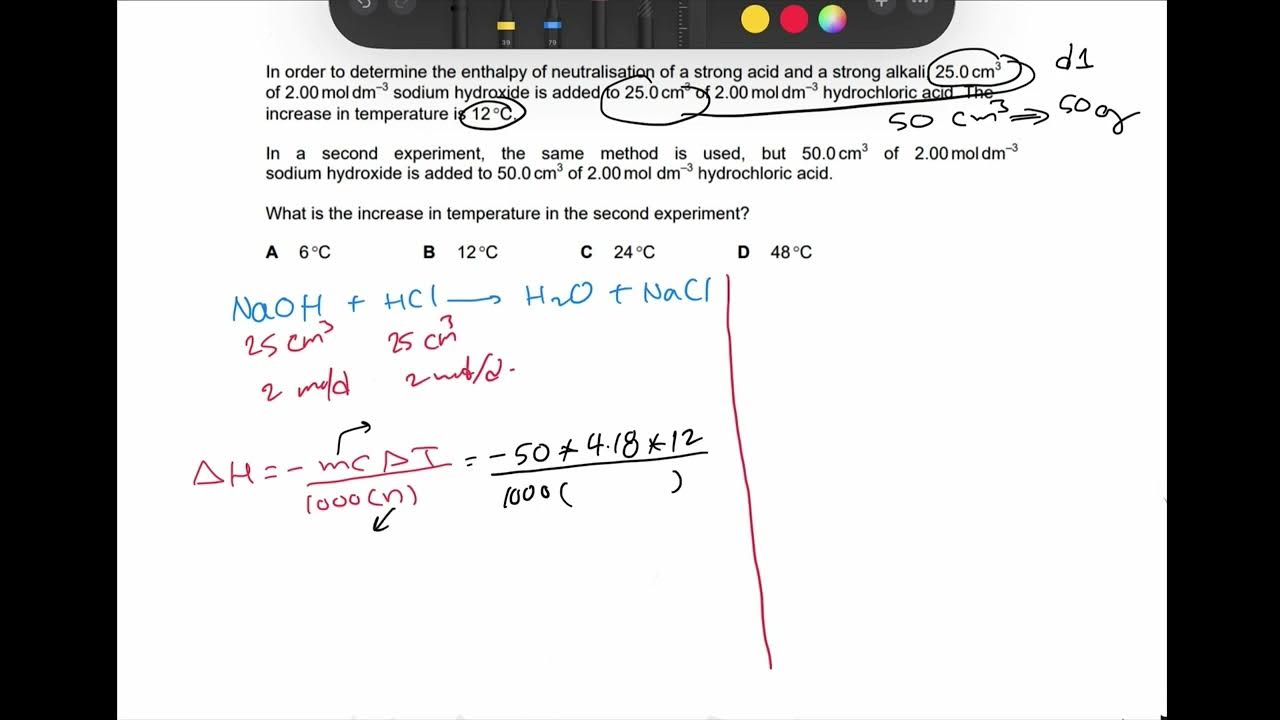 39 79
In order to determine the enthalpy of neutralisation of a strong acid and a strong alkali 25.0 cm³
of 2.00 mol dm⁻³ sodium hydroxide is added to 25.0 cm³ of 2.00 mol dm⁻³ hydrochloric acid. The
increase in temperature is 12 °C.
d1
50 cm³ ⇒ 50 g
In a second experiment, the same method is used, but 50.0 cm³ of 2.00 mol dm⁻³
sodium hydroxide is added to 50.0 cm³ of 2.00 mol dm⁻³ hydrochloric acid.
What is the increase in temperature in the second experiment?
A 6 °C B 12 °C C 24 °C D 48 °C
NaOH + HCl → H₂O + NaCl
25 cm³ 25 cm³
2 mol/d 2 mol/d.
ΔH = - mcΔT / 1000(n) = -50 * 4.18 * 12 / 1000( )